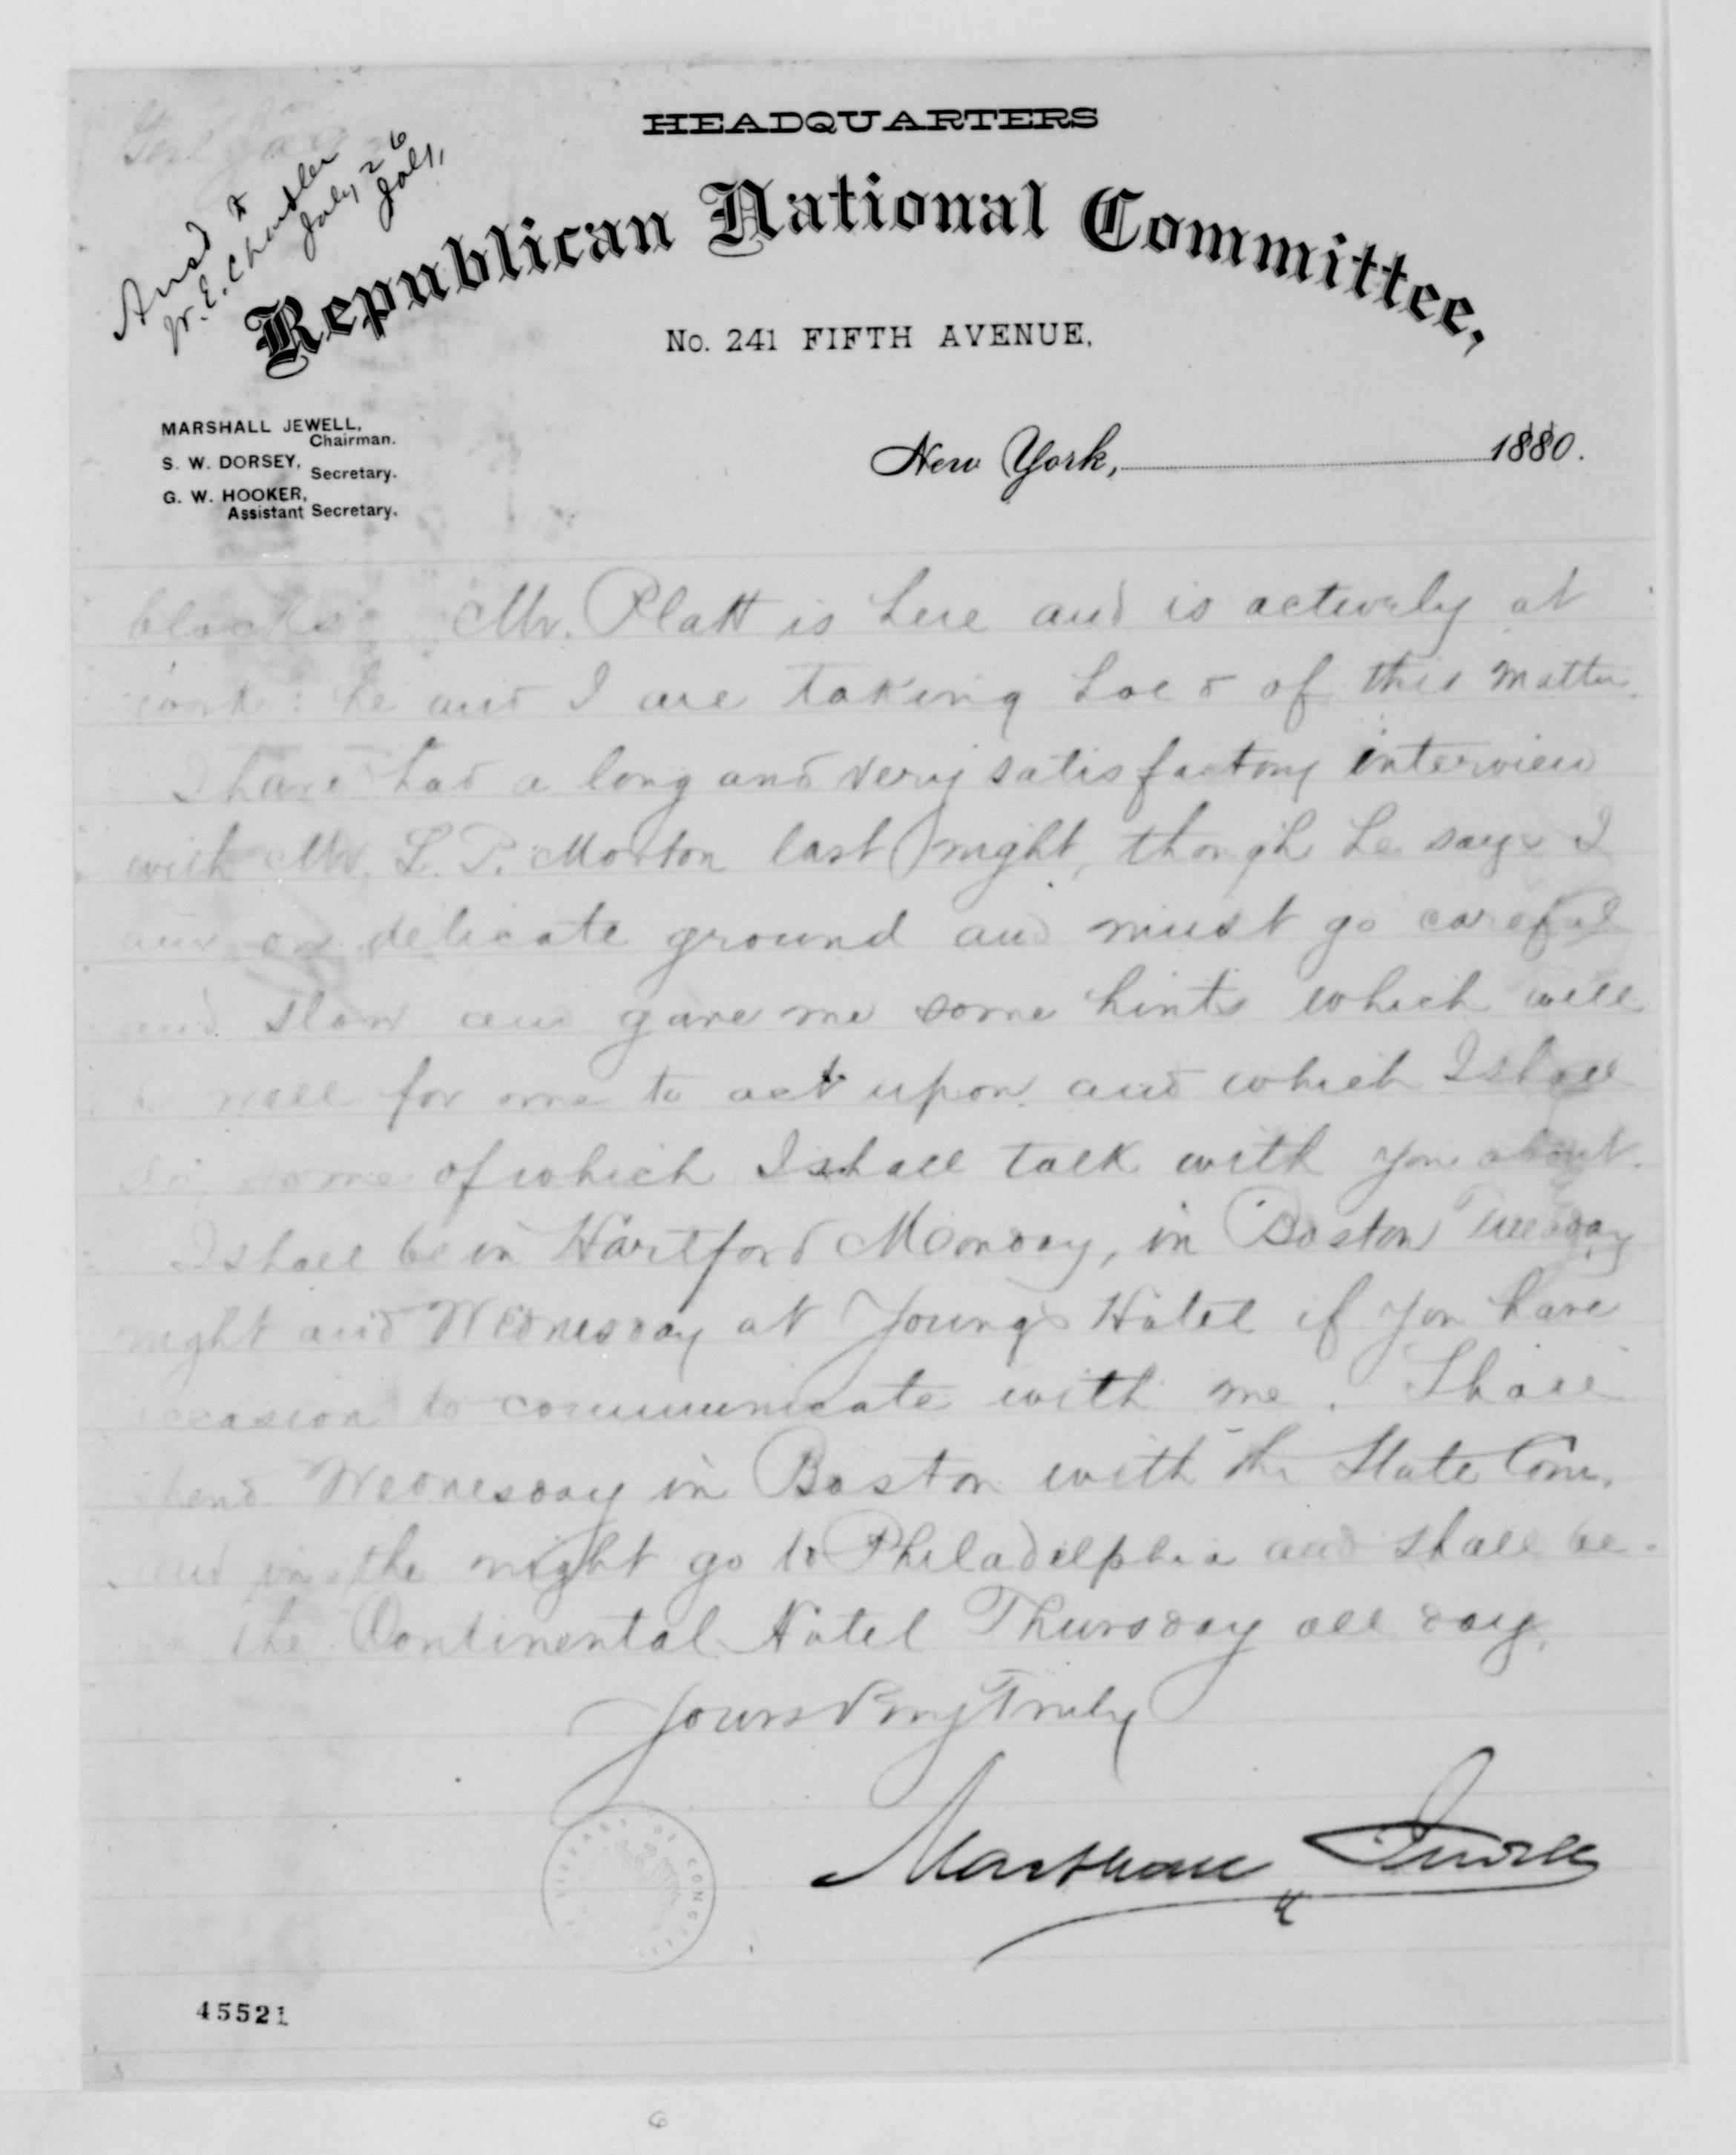 Ansd to
W. E. Chandler
July 26
HEADQUARTERS
Republican National Committee,
No. 241 FIFTH AVENUE,
MARSHALL JEWELL,
Chairman.
S. W. DORSEY,
Secretary.
G. W. HOOKER,
Assistant Secretary.
New York, 1880.
blocks. Mr. Platt is here and is actively at
work: he and I are taking hold of this matter.
I have had a long and very satisfactory interview
with Mr. L. P. Morton last night, though he says I
am on delicate ground and must go careful
and slow and gave me some hints which will
be well for me to act upon and which I shall
do, some of which I shall talk with you about.
I shall be in Hartford Monday, in Boston Tuesday
night and Wednesday at Youngs Hotel if you have
occasion to communicate with me. Shall
spend Wednesday in Boston with the State Com.
and in the night go to Philadelphia and shall be
at the Continental Hotel Thursday all day.
Yours Very Truly
Marshall Jewell
LIBRARY OF CONGRESS
45521
6